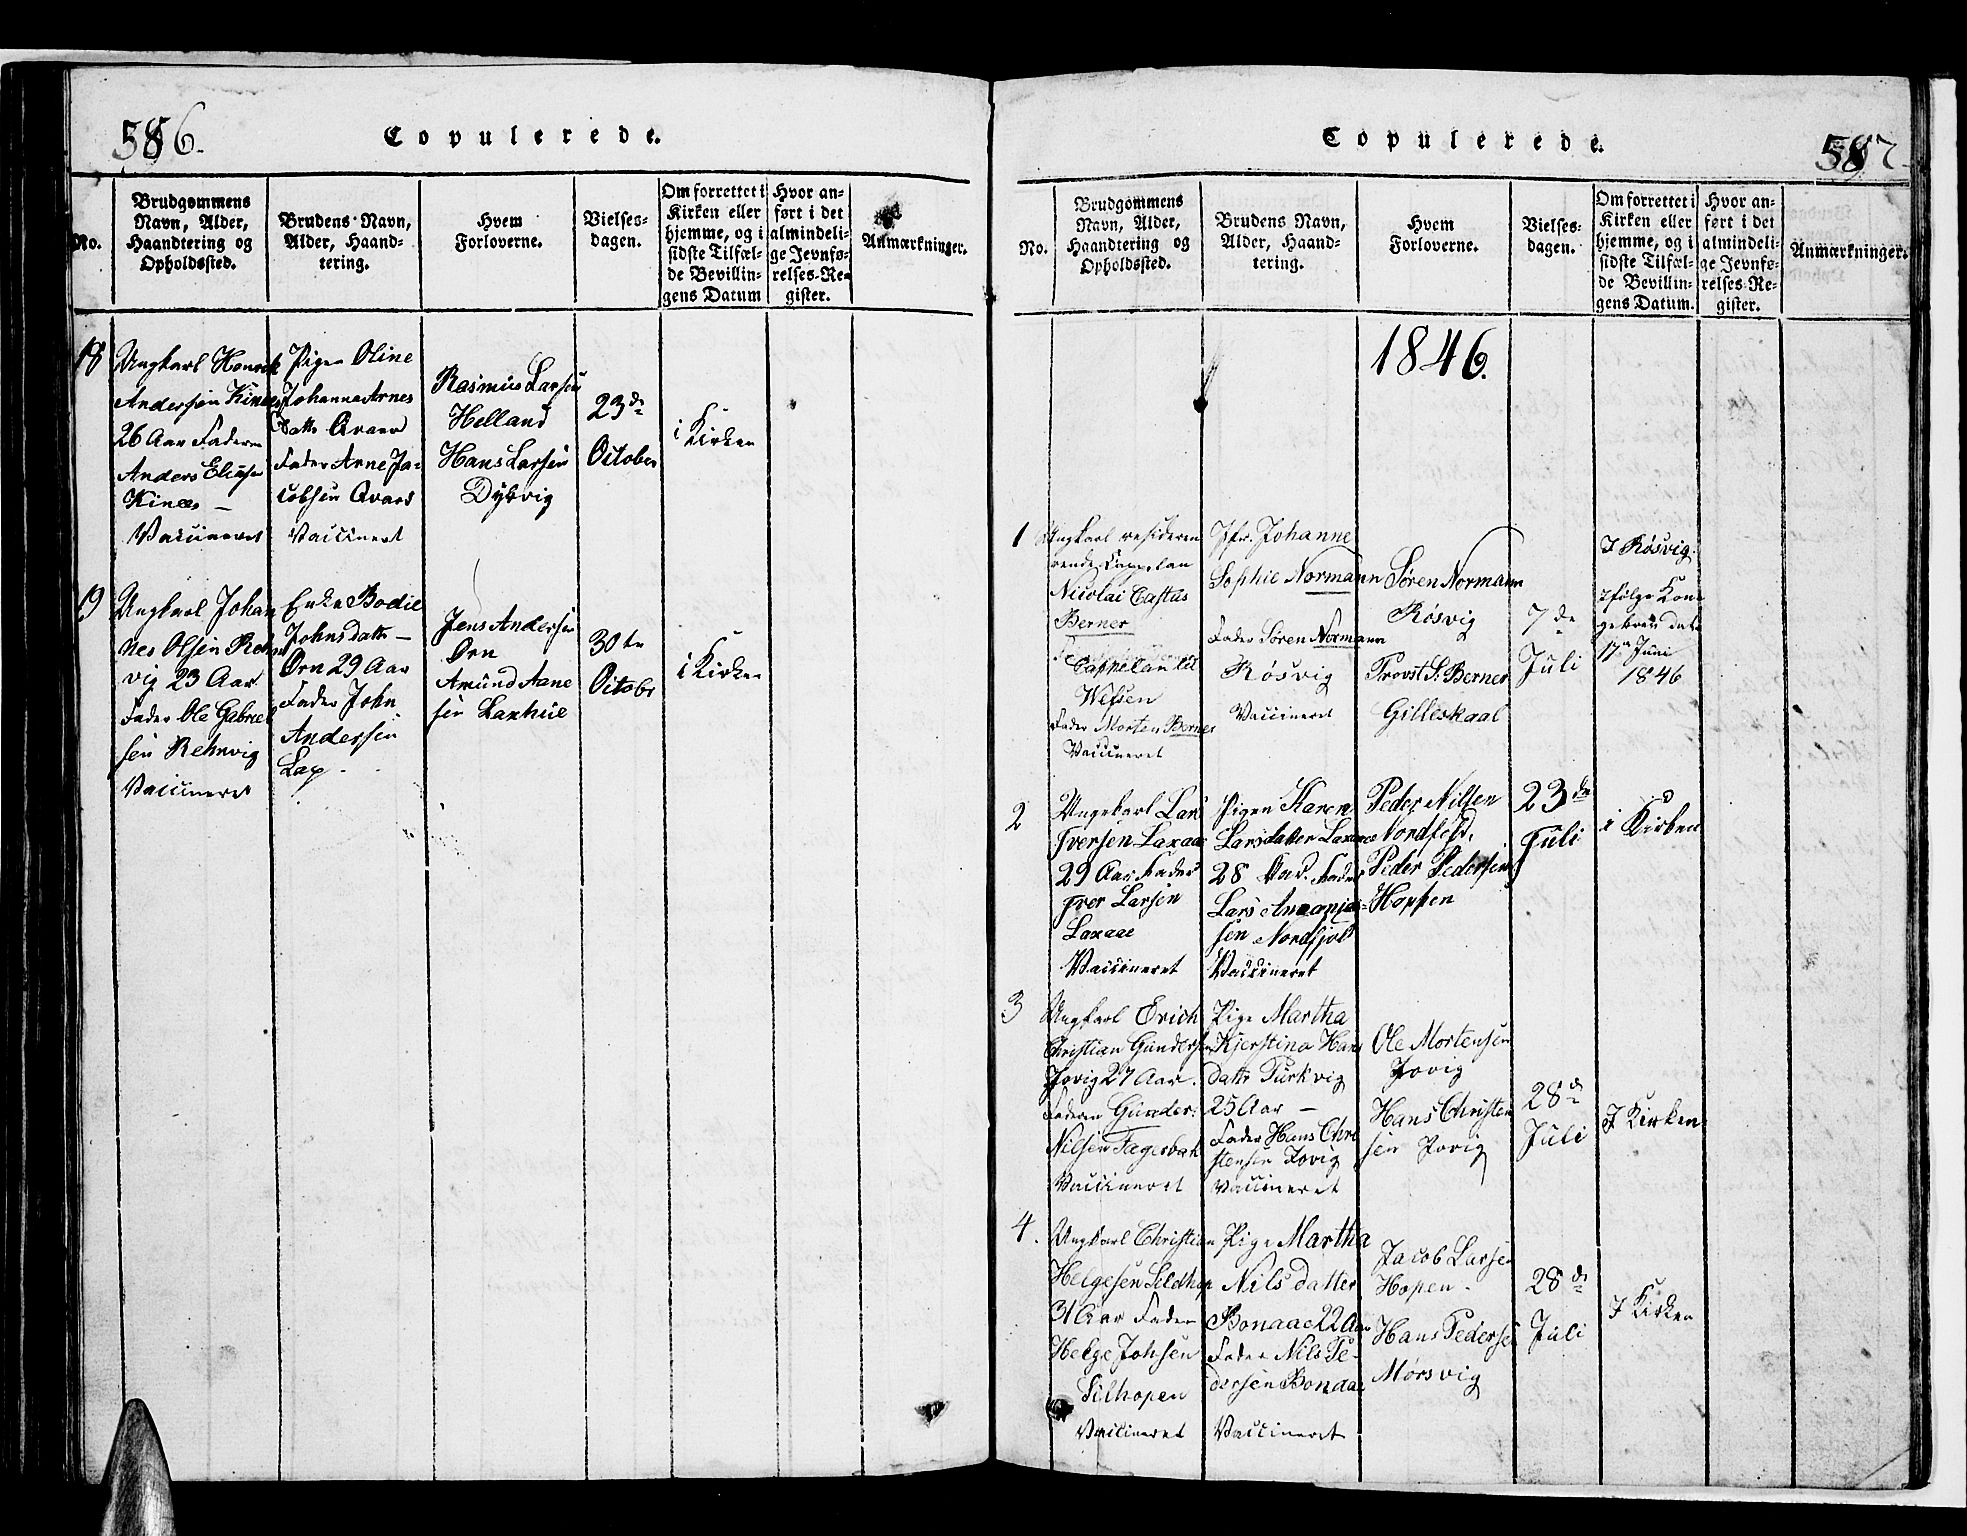 586.
Copulerede.
No.
Brudgommens
Navn, Alder,
Haandtering og
Opholdssted.
Brudens Navn,
Alder, Haand-
tering.
Hvem
Forloverne.
Vielses-
dagen.
Om forrettet i
Kirken eller
hjemme, og i
sidste Tilfæl-
de Bevillin-
gens Datum
Hvor an-
ført i det
almindeli-
ge Jevnfø-
relses-Re-
gister.
Anmærkninger.
18
Ungkarl Henrik
Andersen Kinæs
26 Aar Faderen
Anders
Kinæs –
Vaccineret
Pigen Oline
Johanna Arnes
Datter
Fader Arne Ja-
cobsen
Vaccineret
Rasmus Larsen
Helland
Hans Larsen
Dybvig
23de
October
i Kirken
19
Ungkarl Johan
nes Olsen
vig 23 Aar
Fader Ole Gabriel
sen Rehnvig
Vaccineret
Enke Bodil
Johnsdattr –
Ørn 29 Aar
Fader John
Andersen
Jens Andersen
Ørn
Amund Aane
sen Laxhue
30te
Octobr
i Kirken
Copulerede.
587
No.
Brudgommens
Navn, Alder,
Haandtering og
Opholdssted.
Brudens Navn,
Alder, Haand-
tering.
Hvem
Forloverne.
Vielses-
dagen.
Om forrettet i
Kirken eller
hjemme, og i
sidste Tilfæl-
de Bevillin-
gens Datum.
Hvor an-
ført i det
almindeli-
ge Jevnfø-
relses-Re-
gister.
Anmærkninger.
1846.
1
Ungkarl resideren
rende Cappelan
Nicolai Castus
Berner
Cappelan til
Wefsen
Fader Morten Berner
Vaccineret
Jfr. Johanne
Sophie Normann
Fader Sören Normann
Røsvig
Vaccineret
Søren Normann
Røsvig
Provst S. Berner
Gilleskaal
7de
Juli
I Røsvig
Ifølge Kon
gebrev dat
17de Juni
1846
2
Ungekarl Lars
Iversen Laxaae
29 Aar Fader
Iver Larsen
Laxaae
Vaccineret
Pigen Karen
Larsdatter Laxaae
28 Aar. Fader
Lars Ananias-
sen Nordfjold
Vaccineret
Peder Nilsen
Nordfjd.
Peder Pedersen
Hoppen
23de
Juli
i Kirken
3
Ungkarl Erich
Christian Gundersen
Jovig 27 Aar.
Faderen Gunder
Nilsen Fagerbak
Vaccineret
Pige Martha
Kjerstina Hans
datter Turkvig
25 Aar –
Fader Hans Chri
stensen Jovig
Vaccineret
Ole Mortensen
Jovig
Hans Christen
sen Jovig
28de
Juli
I Kirken
4.
Ungkarl Christian
Helgesen Sildhop
31 Aar Fader
Helge Johsen
Silhopen
Vaccineret
Pige Martha
Nilsdatter
Bonaae 22 Aar
Fader Nils Pe-
dersen Bonaae
Vaccineret
Jacob Larsen
Hopen.
Hans Pedersen
Mørsvig
28de
Juli
I Kirken